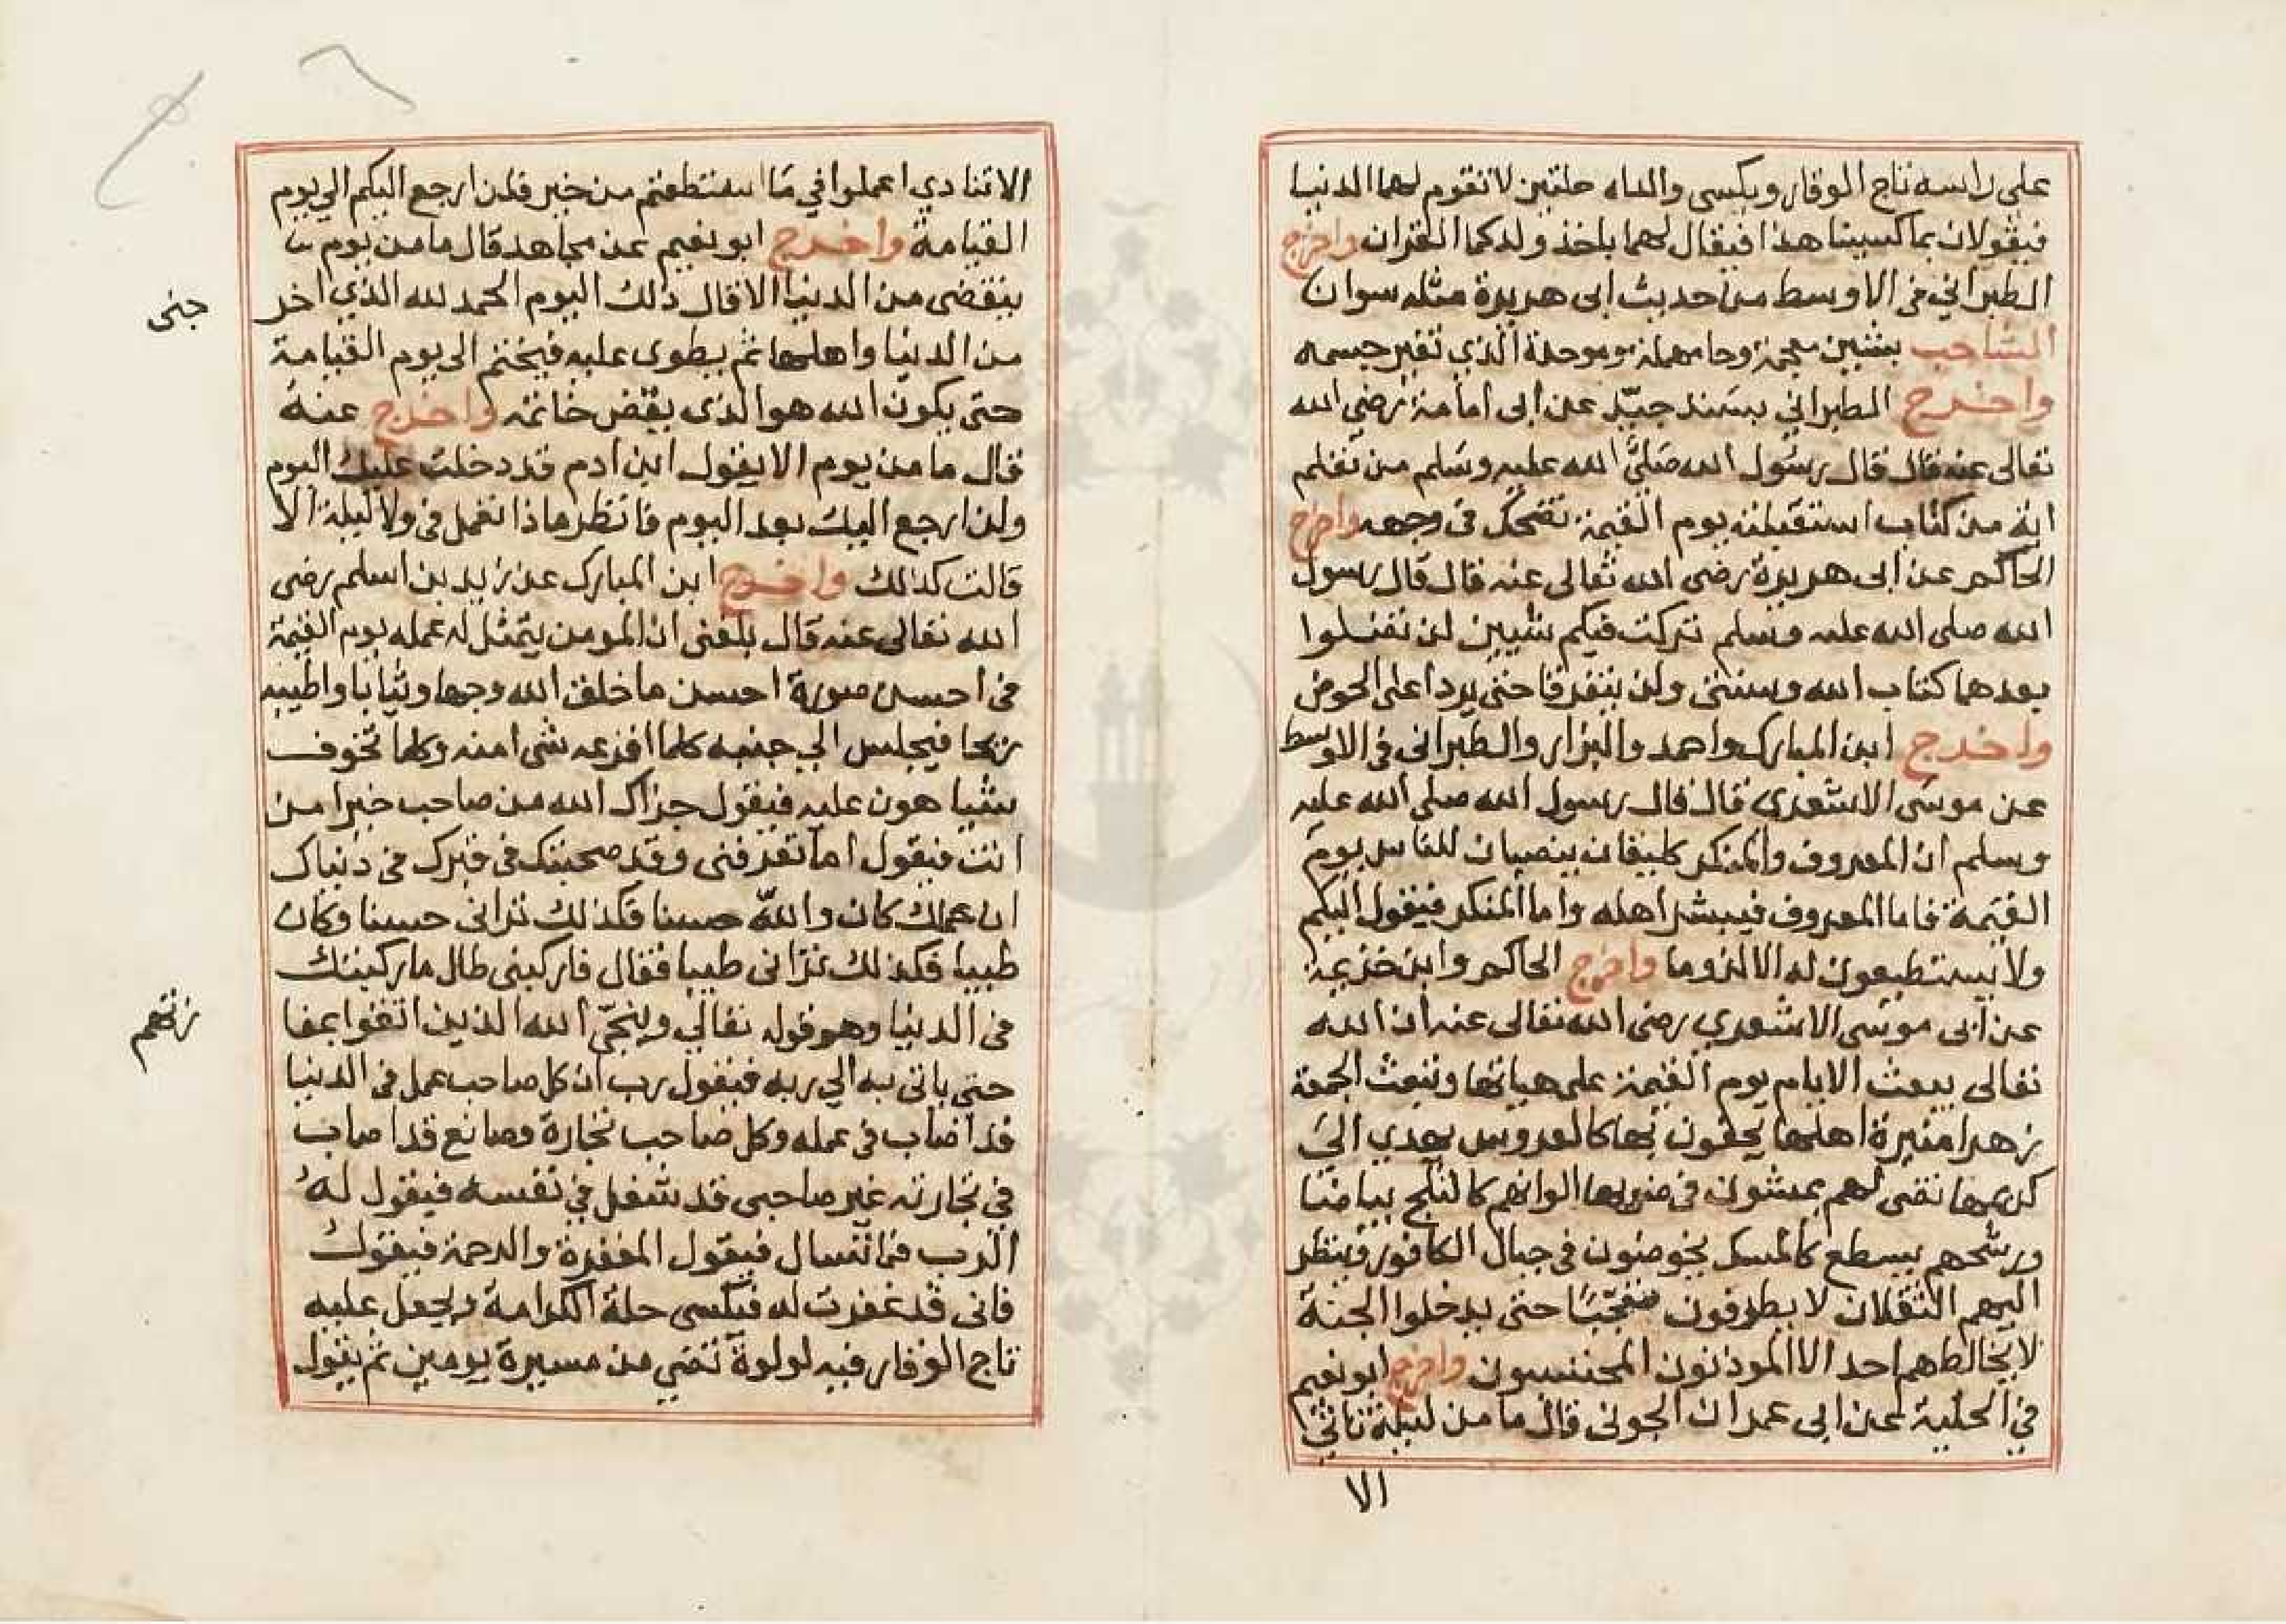 على راسه تاج الوقار ويكسى والداه حلتين لا تقوم لهما الدنيا
فيقولان بما كسينا هذا فيقال لهما باخذ ولدكما القران واخرج
الطبراني في الاوسط من حديث ابى هريرة مثله سوان
الشاحب بشين معجمة وحا مهملة وموحدة الذي تغير جسمه
واخرج الطبراني بسند جيد عن ابى امامة رضى الله
تعالى عنه قال قال رسول الله صلى الله عليه وسلم من تعلم
اية من كتاب استقبلته يوم القيمة تضحك في وجهه واخرج
الحاكم عن ابى هريرة رضى الله تعالى عنه قال قال رسول
الله صلى الله عليه وسلم تركت فيكم شيين لن تضلوا
بعدهما كتاب الله وسنتى ولن يتفرقا حتى يردا على الحوض
واخرج ابن المبارك واحمد والبزار والطبرانى فى الاوسط
عن موسى الاشعرى قال قال رسول الله صلى الله عليه
وسلم ان المعروف والمنكر خليقان ينصبان للناس يوم
القيمة فاما المعروف فيبشر اهله واما المنكر فيقول اليكم
ولا يستطيعون له الا لزوما واخرج الحاكم وابن خزيمة
عن ابى موسى الاشعري رضى الله تعالى عنه ان الله
تعالى يبعث الايام يوم القيمة على هياتها وتبعث الجمعة
زهرا منيرة اهلها يحفون بها كالعروس يهدي الى
كريمها تضى لهم يمشون فى ضويها الوانهم كالثلج بياضا
ورشحهم يسطع كالمسك يخوضون فى جبال الكافور وينظر
اليهم الثقلان لا يطرفون تعجبا حتى يدخلوا الجنة
لا يخالطهم احد الا الموذنون المحتسبون واخرج ابو نعيم
في الحلية عن ابى عمران الجونى قال ما من ليلة تاتي
الا
الا تنادي اعملوا في ما استطعتم من خير فلن ارجع اليكم الي يوم
القيامة واخرج ابو نعيم عن مجاهد قال ما من يوم
ينقضى من الدنيا الا قال ذلك اليوم الحمد لله الذي اخر
جنى
من الدنيا واهلها ثم يطوى عليه فيختم الى يوم القيامة
حتى يكون الله هو الذى يقض خاتمه واخرج عنه
قال ما من يوم الا يقول ابن ادم قد دخلت عليك اليوم
ولن ارجع اليك بعد اليوم فانظر ماذا تعمل فى ولا ليلة الا
قالت كذلك واخرج ابن المبارك عن زيد بن اسلم رضى
الله تعالى عنه قال بلغنى ان المومن يتمثل له عمله يوم القيمة
فى احسن صورة احسن ما خلق الله وجها وثيابا واطيبه
ريحا فيجلس الي جنبه كلما افزعه شى امنه وكلما تخوف
شيا هون عليه فيقول جزاك الله من صاحب خيرا من
انت فيقول اما تعرفنى وقد صحبتك فى قبرك فى دنياك
ان عملك كان والله حسنا فكذلك ترانى حسنا وكان
طيبا فكذلك ترانى طيبا فقال فاركبنى طال ما ركبتك
فى الدنيا وهو قوله تعالي وينجي الله الذين اتقوا بمفا
زتهم
حتى ياتى به الي ربه فيقول رب ان كل صاحب عمل فى الدنيا
قد اصاب فى عمله وكل صاحب تجارة وصانع قد اصاب
في تجارته غير صاحبى قد شغل في نفسه فيقول له
الرب فما تسال فيقول المغفرة والرحمة فيقول
فانى قد غفرت له فيكسى حلة الكرامة ويجعل عليه
تاج الوقار فيه لولوة تضي من مسيرة يومين ثم يقول